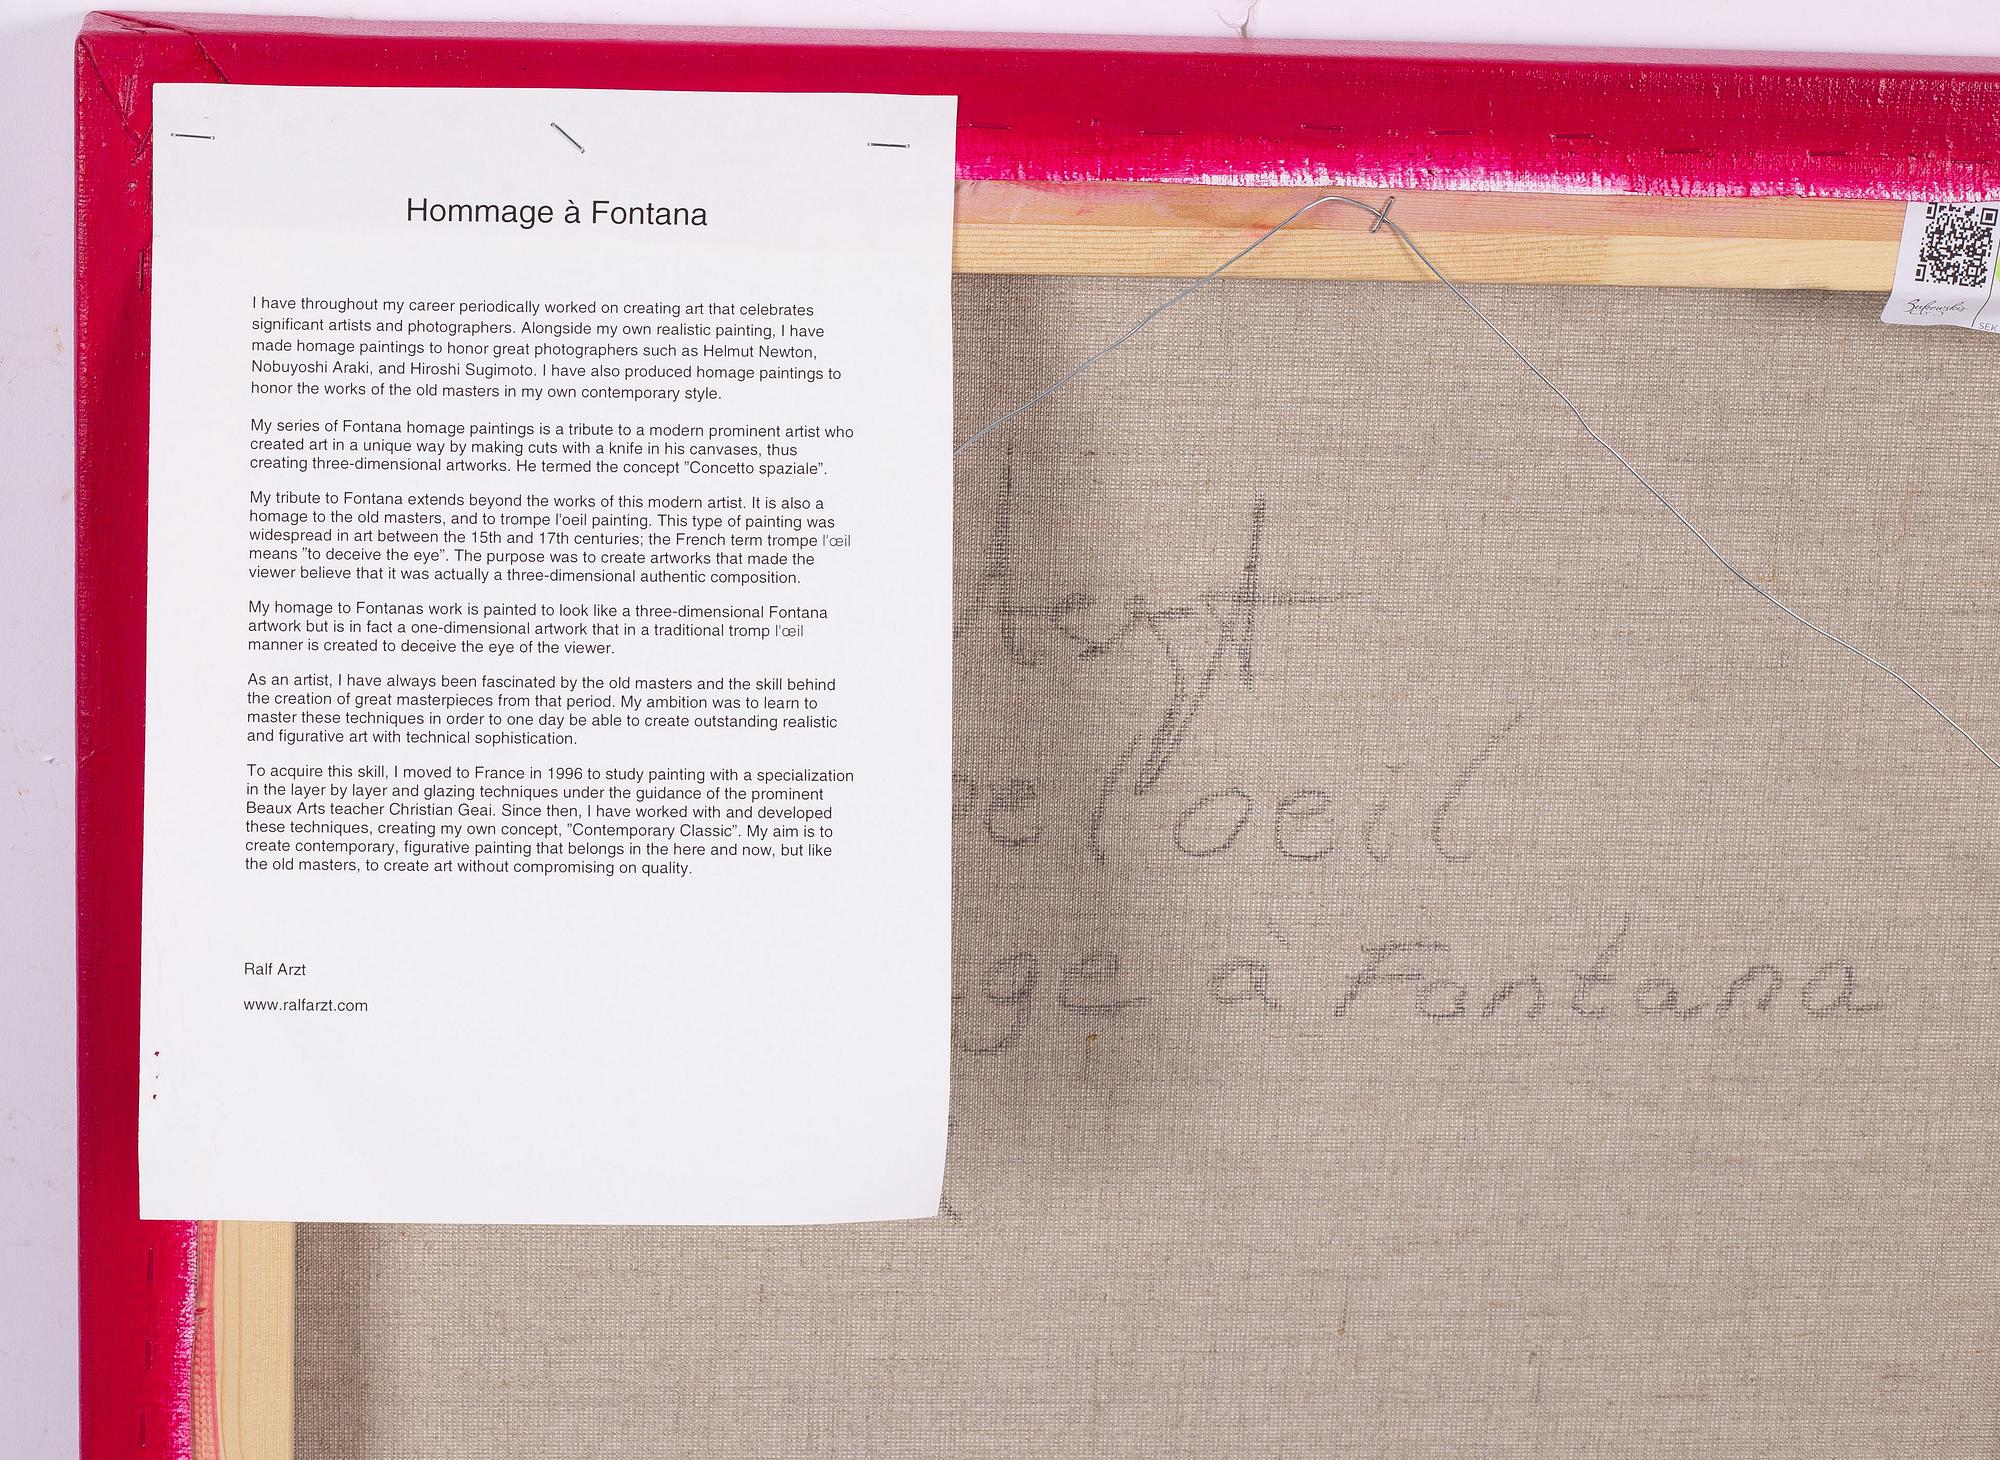 Hommage à Fontana
I have throughout my career periodically worked on creating art that celebrates
significant artists and photographers. Alongside my own realistic painting, I have
made homage paintings to honor great photographers such as Helmut Newton,
Nobuyoshi Araki, and Hiroshi Sugimoto. I have also produced homage paintings to
honor the works of the old masters in my own contemporary style.
My series of Fontana homage paintings is a tribute to a modern prominent artist who
created art in a unique way by making cuts with a knife in his canvases, thus
creating three-dimensional artworks. He termed the concept ”Concetto spaziale”.
My tribute to Fontana extends beyond the works of this modern artist. It is also a
homage to the old masters, and to trompe l'oeil painting. This type of painting was
widespread in art between the 15th and 17th centuries; the French term trompe l'œil
means ”to deceive the eye”. The purpose was to create artworks that made the
viewer believe that it was actually a three-dimensional authentic composition.
My homage to Fontanas work is painted to look like a three-dimensional Fontana
artwork but is in fact a one-dimensional artwork that in a traditional tromp l'œil
manner is created to deceive the eye of the viewer.
As an artist, I have always been fascinated by the old masters and the skill behind
the creation of great masterpieces from that period. My ambition was to learn to
master these techniques in order to one day be able to create outstanding realistic
and figurative art with technical sophistication.
To acquire this skill, I moved to France in 1996 to study painting with a specialization
in the layer by layer and glazing techniques under the guidance of the prominent
Beaux Arts teacher Christian Geai. Since then, I have worked with and developed
these techniques, creating my own concept, ”Contemporary Classic”. My aim is to
create contemporary, figurative painting that belongs in the here and now, but like
the old masters, to create art without compromising on quality.
Ralf Arzt
www.ralfarzt.com
pe l'oeil
ge à Fontana
SEK